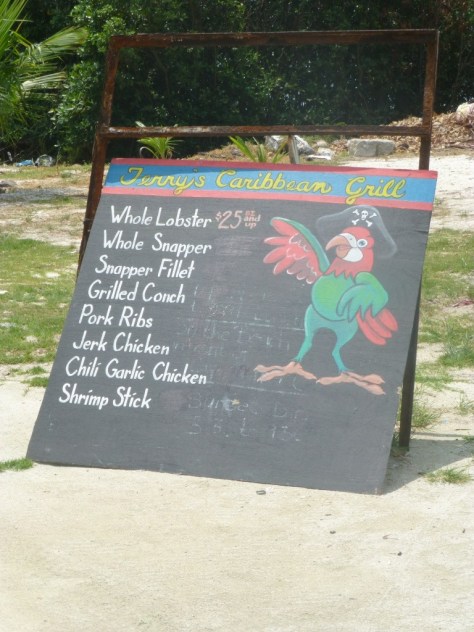 Terry's Caribbean Grill
Whole Lobster $25.00 and up
Whole Snapper
Snapper Fillet
Grilled Conch
Pork Ribs
Jerk Chicken
Chili Garlic Chicken
Shrimp Stick